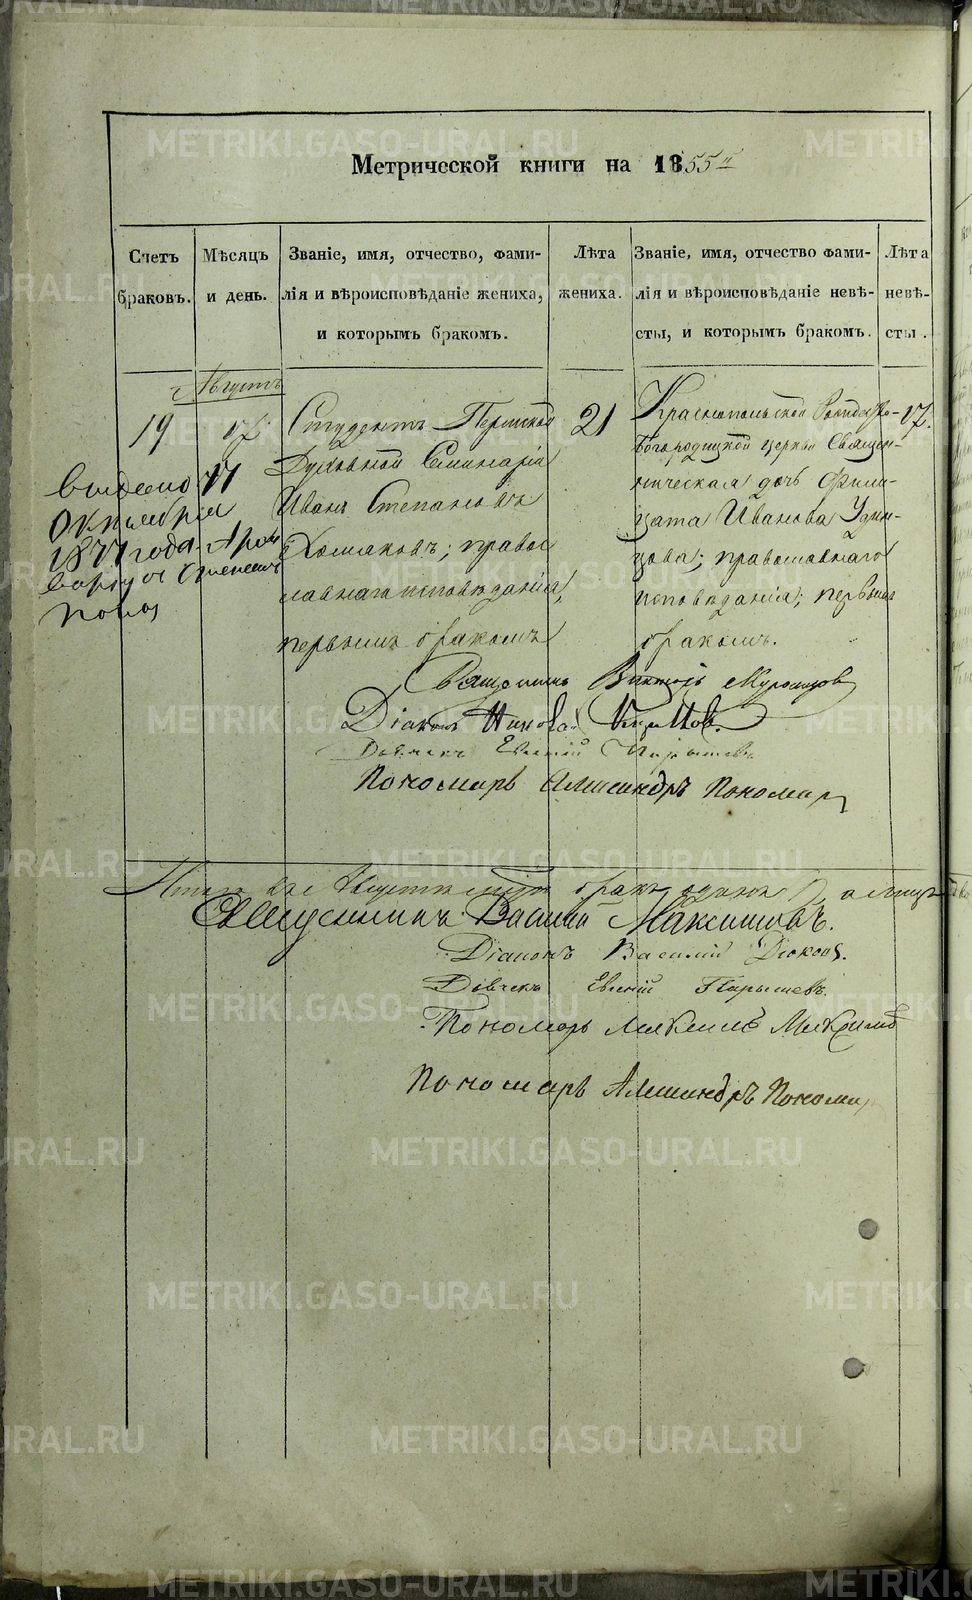 Метрической книги на 1855й
Счетъ браковъ.
Мѣсяцъ и день.
Званіе, имя, отчество, фамилія и вѣроисповѣданіе жениха, и которымъ бракомъ.
Лѣта жениха.
Званіе, имя, отчество фамилія и вѣроисповѣданіе невѣсты, и которымъ бракомъ.
Лѣта невѣсты.
Августъ
19
17.
Студентъ Пермской
Духовной Семинаріи
Иванъ Степановъ
Хомяковъ; правос
лавнаго исповѣданія,
первымъ бракомъ
21
Краснопольской
Богородицкой церкви Священ-
ническая дочь Фили-
цата Иванова Удин-
цова; православнаго
исповѣданія; первымъ
бракомъ.
17.
выдано 11
Октября
1877 года
Священникъ
Діаконъ
Дьячекъ Евгеній Парышевъ
Пономарь Александръ Пономар
Итого въ Августѣ бракъ одинъ
Священникъ Василій Максимовъ.
Діаконъ Василій
Дьячекъ Евгеній Парышевъ.
Пономарь
Пономарь Александръ Пономар
METRIKI.GASO-URAL.RU